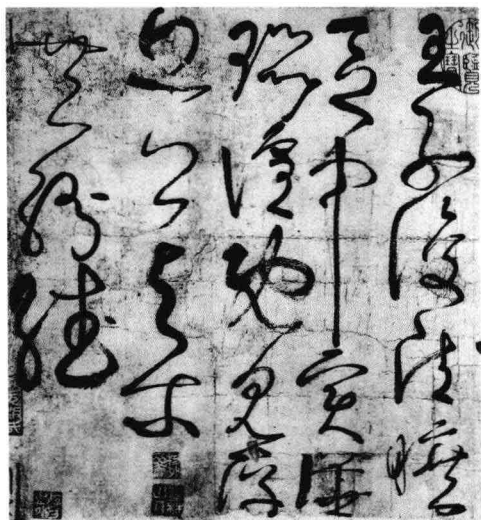 王子復清曠
區中實譁
囂喧既見浮
丘公與爾
共紛繙